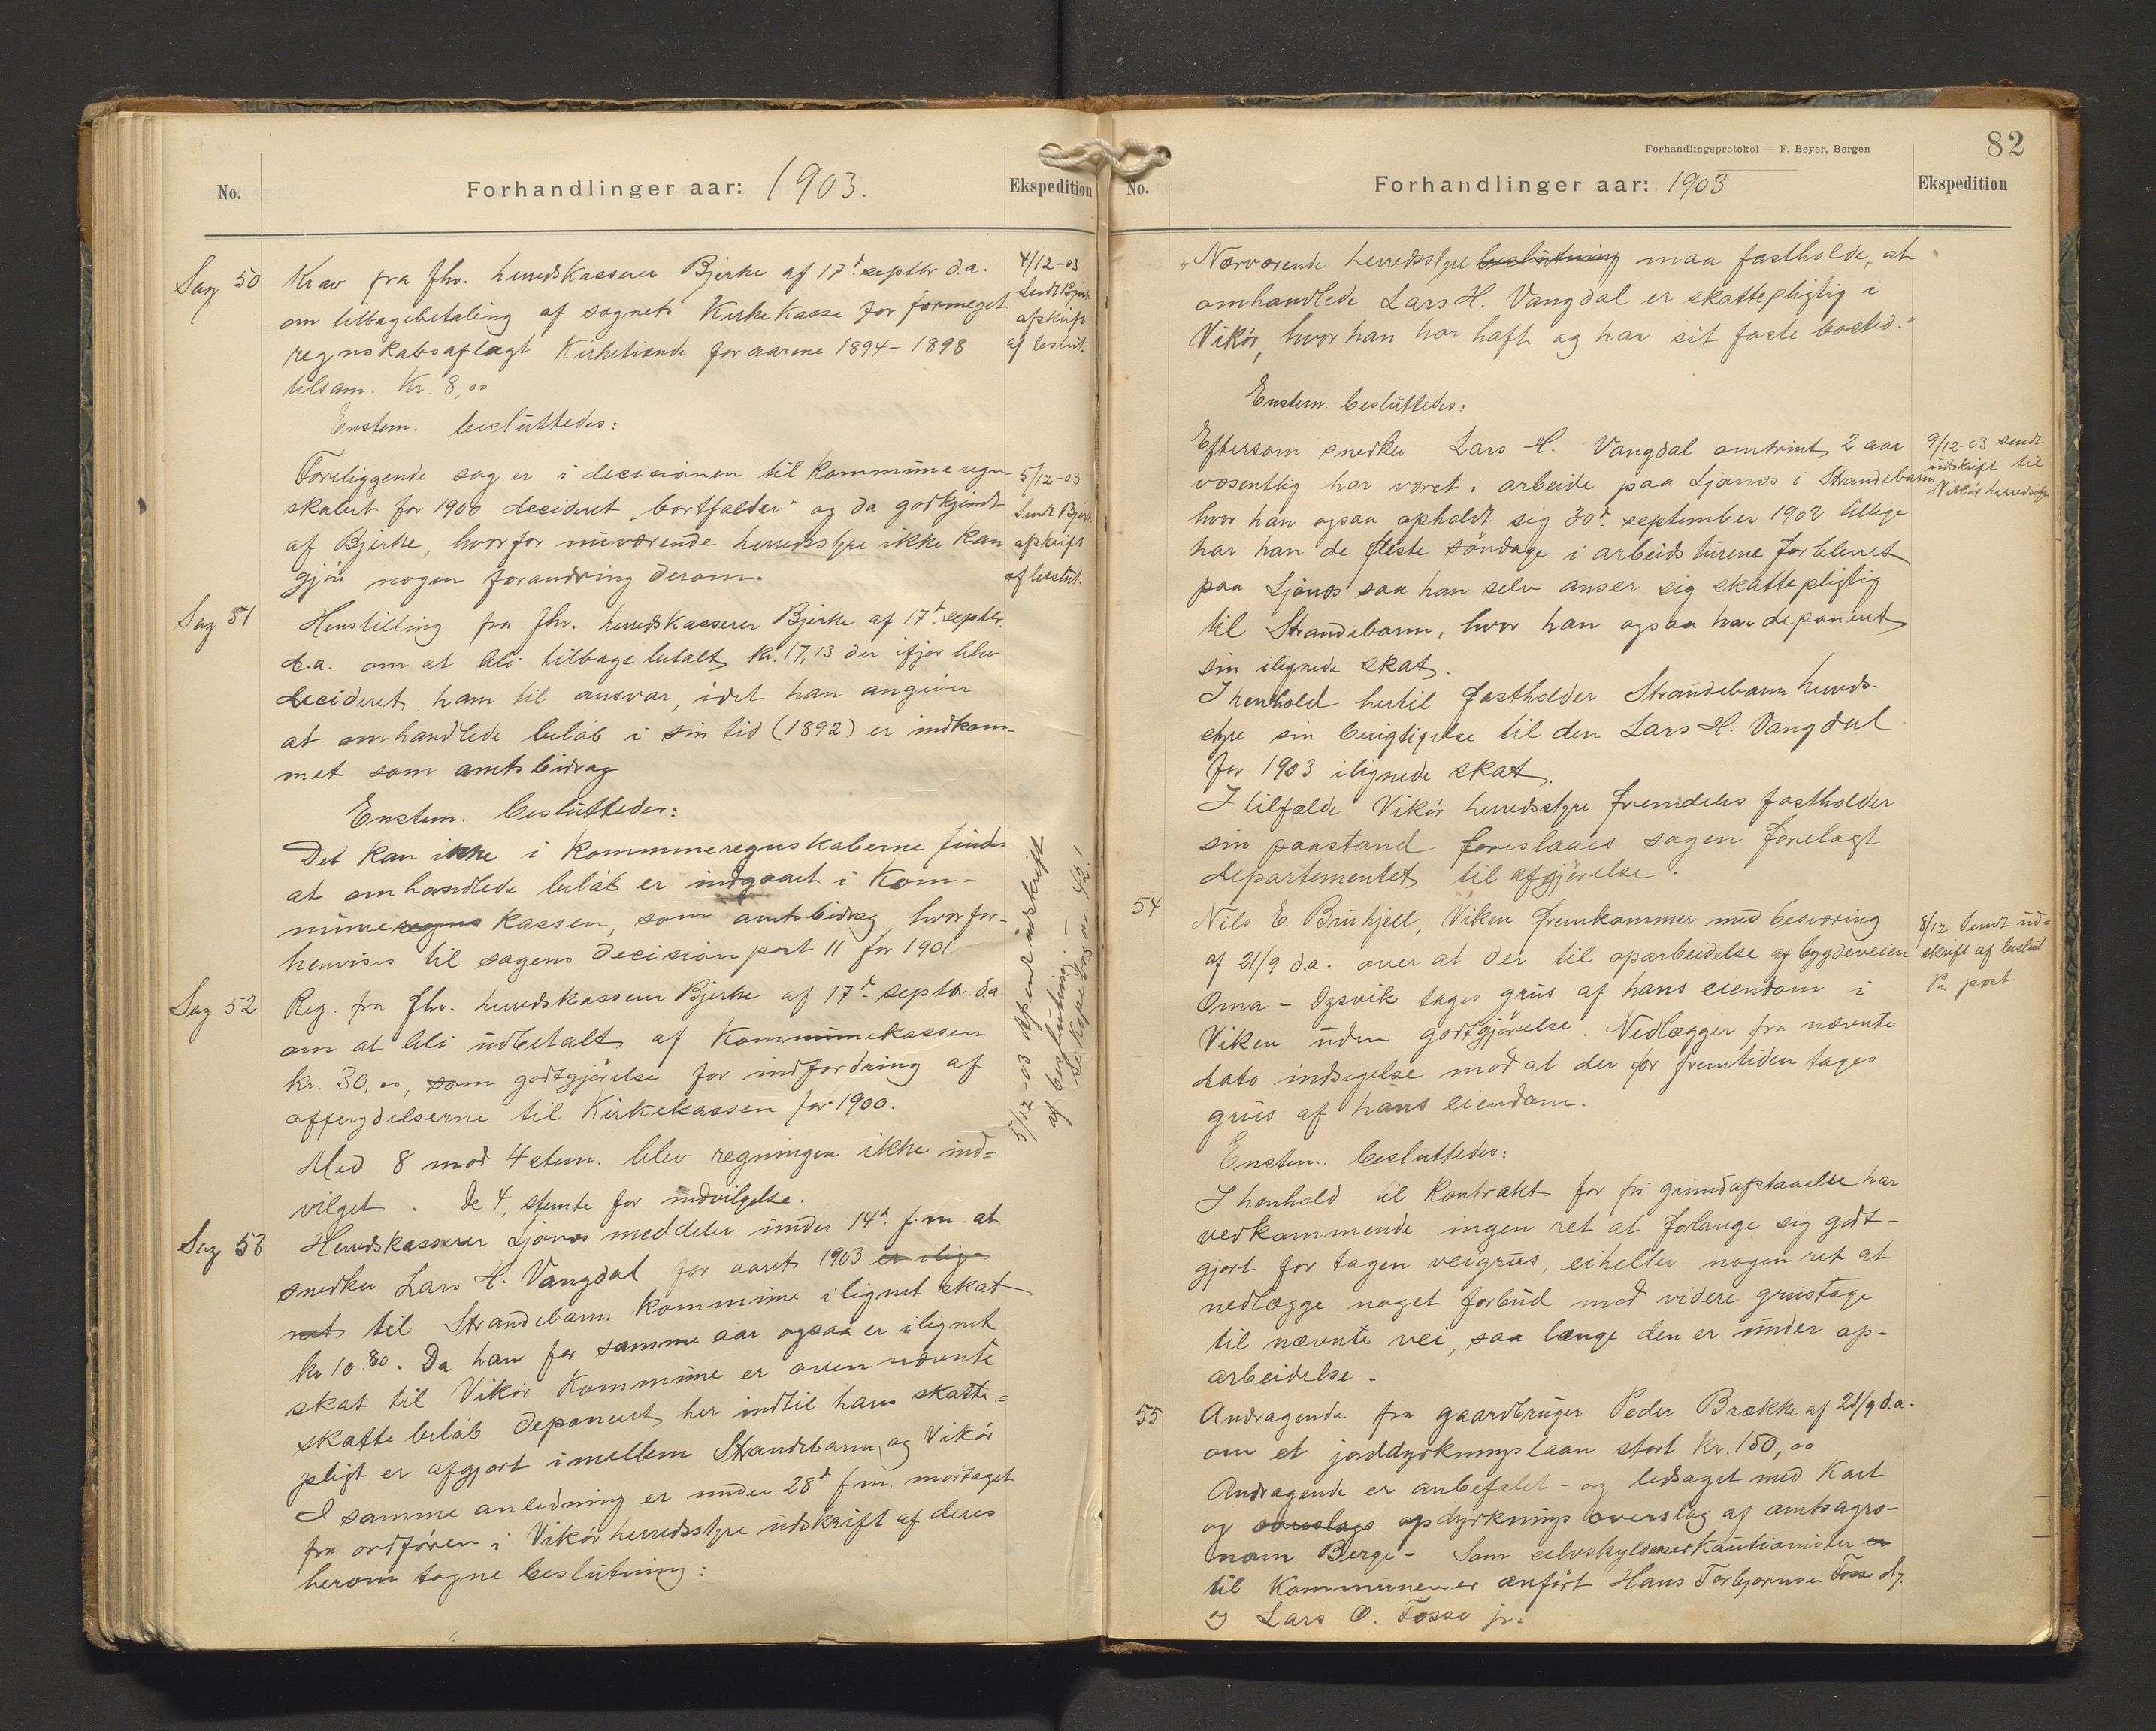 No.
Forhandlinger aar: 1903.
Ekspedition
Sag 50
Krav fra fhv. herredskasserer Bjerke af 17d septbr d.a.
om tilbagebetaling af sognets Kirkekasse for formeget
regnskabsaflagt Kirketiende for aarene 1894-1898
tilsam. Kr. 8,00
Enstem. besluttedes:
4/12-03
Sendt Bjerke
afskrift
af beslut.
Foreliggende sag er i decisionen til Kommuneregn-
skabet for 1900 decideret „bortfalder“ og da godkjendt
af Bjerke, hvorfor nuværende herredsstyre ikke kan
gjøre nogen forandring derom.
5/12-03
Sendt Bjerke
afskrift
af beslut.
Sag 51
Henstilling fra fhv. herredskasserer Bjerke af 17d septbr.
d.a. om at bli tilbagebetalt Kr. 17,13 der ifjor blev
decideret ham til ansvar, idet han angiver
at omhandlede beløb i sin tid (1892) er indkom-
met som amtsbidrag
Enstem. besluttedes:
Det kan ikke i kommuneregnskaberne findes
at omhandlede beløb er indgaaet i Kom-
muneregns kassen, som amtsbidrag hvorfor
henvises til sagens decision post 11 for 1901.
Sag 52
Reg. fra fhv. herredskasserer Bjerke af 17d septbr. d.a.
om at bli udbetalt af Kommunekassen
kr. 30,00, som godtgjørelse for indfordring af
afgydelserne til Kirkekassen for 1900.
Med 8 mod 4 stem. blev regningen ikke ind=
vilget. De 4, stemte for indvilgelse.
5/12-03 Bjerke udskrift
af beslutning. –
Sag 53
Herredskasserer Ljønes meddeler under 14d f.m. at
snedker Lars H. Vangdal for aaret 1903 er ilig-
net til Strandebarm kommune ilignet skat
kr 10.80. Da han for samme aar ogsaa er ilignet
skat til Vikør Kommune er ovennævnte
skattebeløb deponeret her indtil hans skatte=
pligt er afgjort imellem Strandebarm og Vikør
I samme anledning er under 28d f.m. modtaget
fra ordføren i Vikør herredsstyre udskrift af deres
herom tagne beslutning:
Forhandlingsprotokol — F. Beyer, Bergen
82
No.
Forhandlinger aar: 1903
Ekspedition
„Nærværende herredsstyre beslutning maa fastholde, at
omhandlede Lars H. Vangdal er skattepligtig i
Vikør, hvor han har haft og har sit faste bosted.“
Enstem. besluttedes:
Eftersom snedker Lars H. Vangdal omtrint 2 aar
væsentlig har været i arbeide paa Ljønes i Strandebarm
hvor han ogsaa opholdt sig 30d september 1902 tillige
har han de fleste søndage i arbeidsturene forblevet
paa Ljønes saa han selv anser sig skattepligtig
til Strandebarm, hvor han ogsaa har deponeret
sin ilignede skat.
9/12-03 sendt
udskrift til
Vikør herredsstyre
I henhold hertil fastholder Strandebarm herreds-
styre sin berigtigelse til den Lars H. Vangdal
for 1903 ilignede skat.
I tilfælde Vikør herredsstyre fremdeles fastholder
sin paastand foreslaaes sagen forelagt
departementet til afgjørelse.
54
Nils E. Bruhjell, Viken fremkommer med besværing
af 21/9 d.a. over at der til oparbeidelse af bygdeveien
Oma - Ogsvik tages grus af hans eiendom i
Viken uden godtgjørelse. Nedlægger fra nævnte
dato indsigelse mod at der for fremtiden tages
grus af hans eiendom.
8/12 Sendt ud=
skrift af beslut.
Pr post.
Enstem. besluttedes:
I henhold til kontrakt for fri grundafstaaelse har
vedkommende ingen ret at forlange sig godt-
gjort for tagen veigrus, eiheller nogen ret at
nedlægge noget forbud mod videre grustage
til nævnte vei, saa længe den er under op-
arbeidelse.
55
Andragende fra gaardbruger Peder Brække af 21/9 d.a.
om et jorddyrkningslaan stort kr. 150,00
Andragende er anbefalet - og ledsaget med Kart
og overslags opdyrknings overslag af amtsagro-
nom Berge - Som selvskyldnerkautionister er
til Kommunen er anført Hans Torbjørnsen Fosse
og Lars O. Fosse jr.